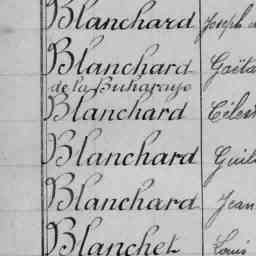 Blanchard Joseph
Blanchard Gaëta
de la Buharaye
Blanchard Célest
Blanchard Guil
Blanchard Jean
Blanchet Louis